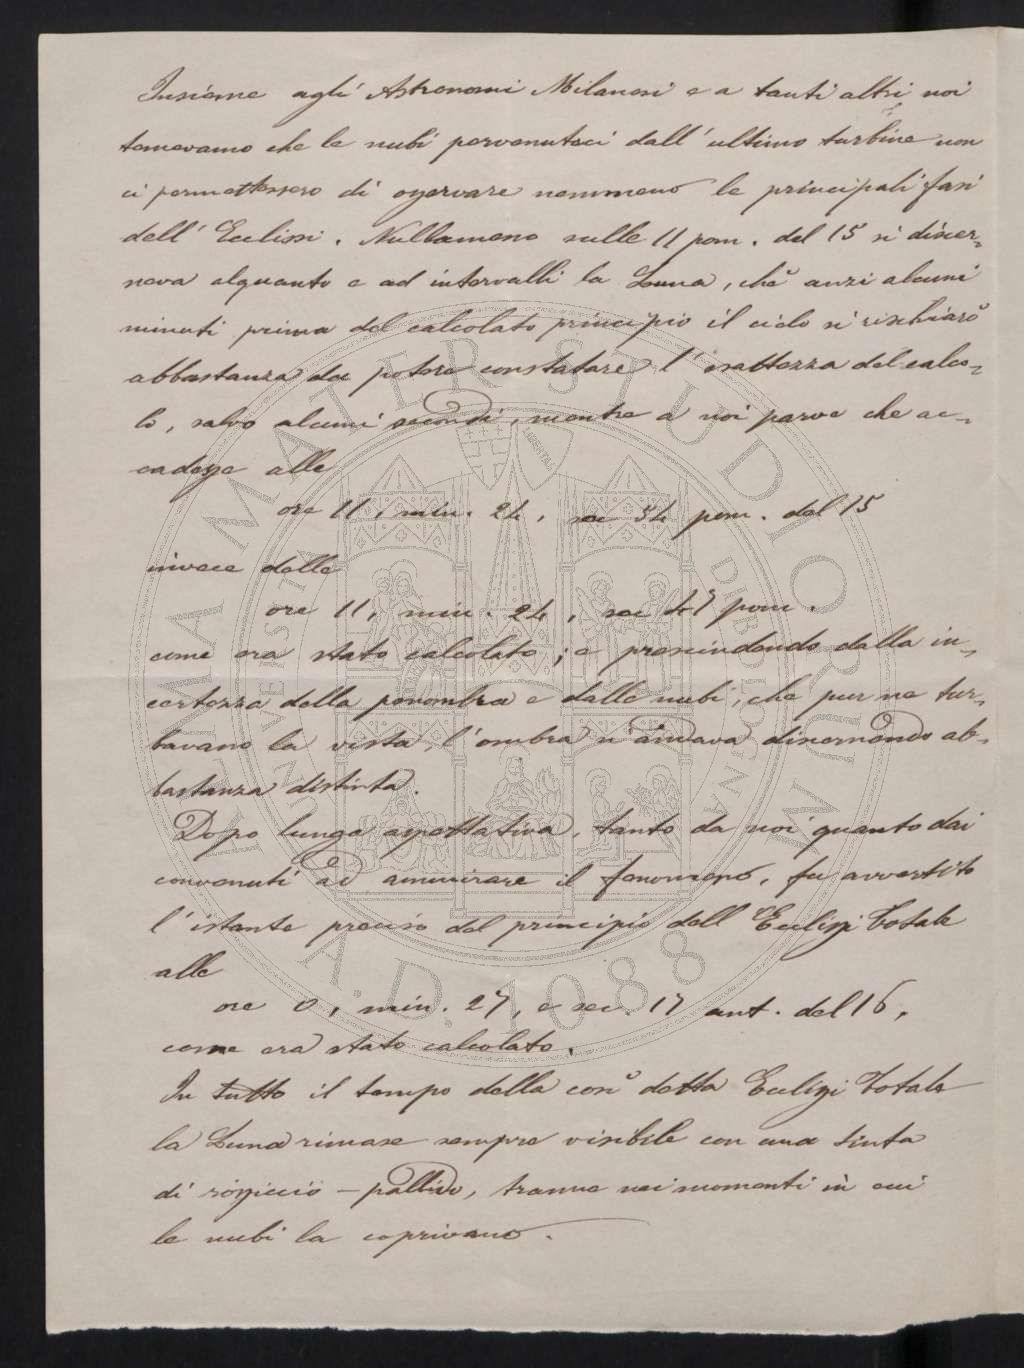 Insieme agli Astronomi Milanesi e a tanti altri noi
temevamo che le nubi pervenuteci dall'ultimo turbine non
ci permettessero di osservare nemmeno le principali fasi
dell'Eclissi. Nullameno sulle 11 pom. del 15 si discer=
neva alquanto e ad intervalli la Luna, chè anzi alcuni
minuti prima del calcolato principio il cielo si rischiarò
abbastanza da potere constatare l'esattezza del calco=
lo, salvo alcuni secondi, mentre a noi parve che ac=
cadesse alle
ore 11, min. 24, sec 54 pom. del 15
invece delle
ore 11, min. 24, sec 47 pom.
come era stato calcolato; e prescindendo dalla in=
certezza della penombra e dalle nubi, che pur ne tur=
bavano la vista, l'ombra n'andava discernendo ab=
bastanza distinta.
Dopo lunga aspettativa, tanto da noi quanto dai
convenuti ad ammirare il fenomeno, fu avvertito
l'istante preciso del principio dell'Eclissi totale
alle
ore 0, min. 27, e sec. 17 ant. del 16,
come era stato calcolato.
In tutto il tempo della così detta Eclissi Totale
la Luna rimase sempre visibile con una tinta
di rossiccio – pallido, tranne nei momenti in cui
le nubi la coprivano.
ALMA MATER STUDIORUM
UNIVERSITÀ DI BOLOGNA
LIBERTAS
A.D. 1088